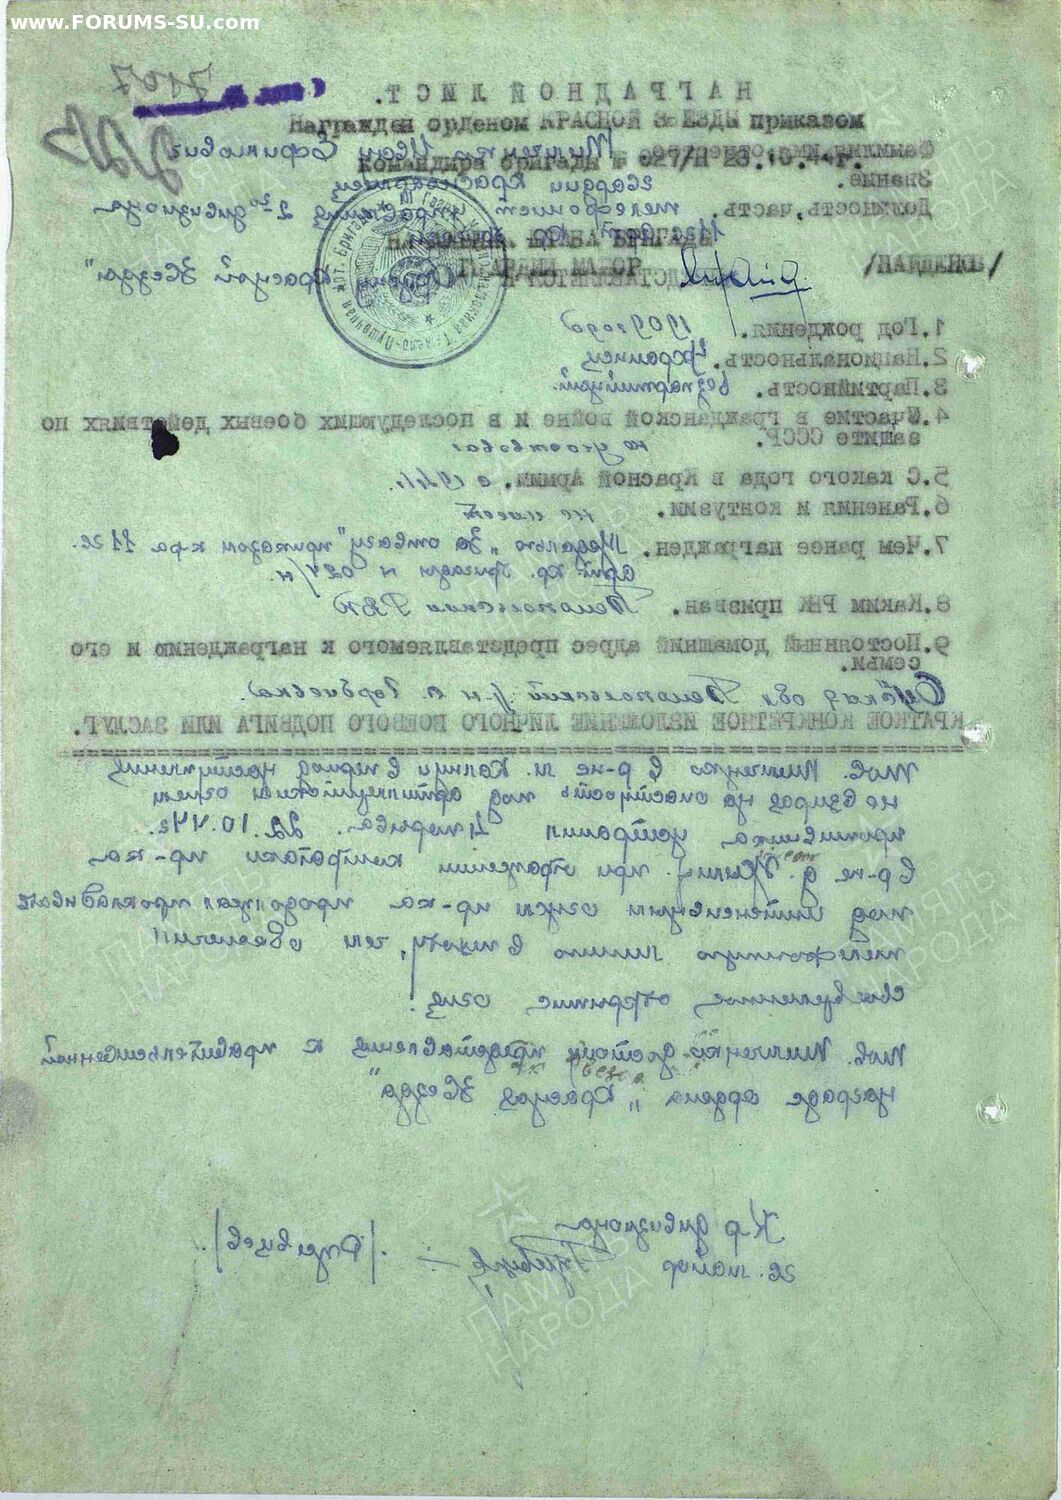 www.FORUMS-SU.com
НАГРАДНОЙ ЛИСТ.
Награжден орденом КРАСНОЙ ЗВЕЗДЫ приказом
Фамилия, имя, отчество Иван Ефимович
командира бригады
Звание. гвардии красноармеец
Должность, часть. телефонист управления 2-го дивизиона
НАЧАЛЬНИК ШТАБА БРИГАДЫ
ГВАРДИИ МАЙОР /НАЙДЕНОВ/
ПРЕДСТАВЛЯЕТСЯ К ордену "Красной Звезды"
1.Год рождения. 1909 года
2.Национальность. Украинец
3.Партийность. безпартийный.
4.Участие в гражданской войне и в последующих боевых действиях по
защите СССР. не участвовал
5.С какого года в Красной Армии. с 1941.
6.Ранения и контузии. не имеет
7.Чем ранее награжден. Медалью "За отвагу" приказом к-ра 11 гв.
арт. кр. бригады н 024/н.
8.Каким РВК призван. Белопольским РВК
9.Постоянный домашний адрес представляемого к награждению и его
семьи.
Сумская обл Белопольский р-н
КРАТКОЕ КОНКРЕТНОЕ ИЗЛОЖЕНИЕ ЛИЧНОГО БОЕВОГО ПОДВИГА ИЛИ ЗАСЛУГ.
Тов. в р-не м. в период наступления
не взирая на опастность под артиллерийским огнем
противника устранил 4 порыва. 22.10.44г.
в р-не д. при отражении контратаки пр-ка
под интенсивным огнем пр-ка продолжал прокладывать
телефонную линию в пехоту, чем обеспечил
своевременное открытие огня.
Тов. достоин представления к правительственной
награде ордена "Красная Звезда"
К-р дивизиона
гв. майор
ПАМЯТЬ
НАРОДА